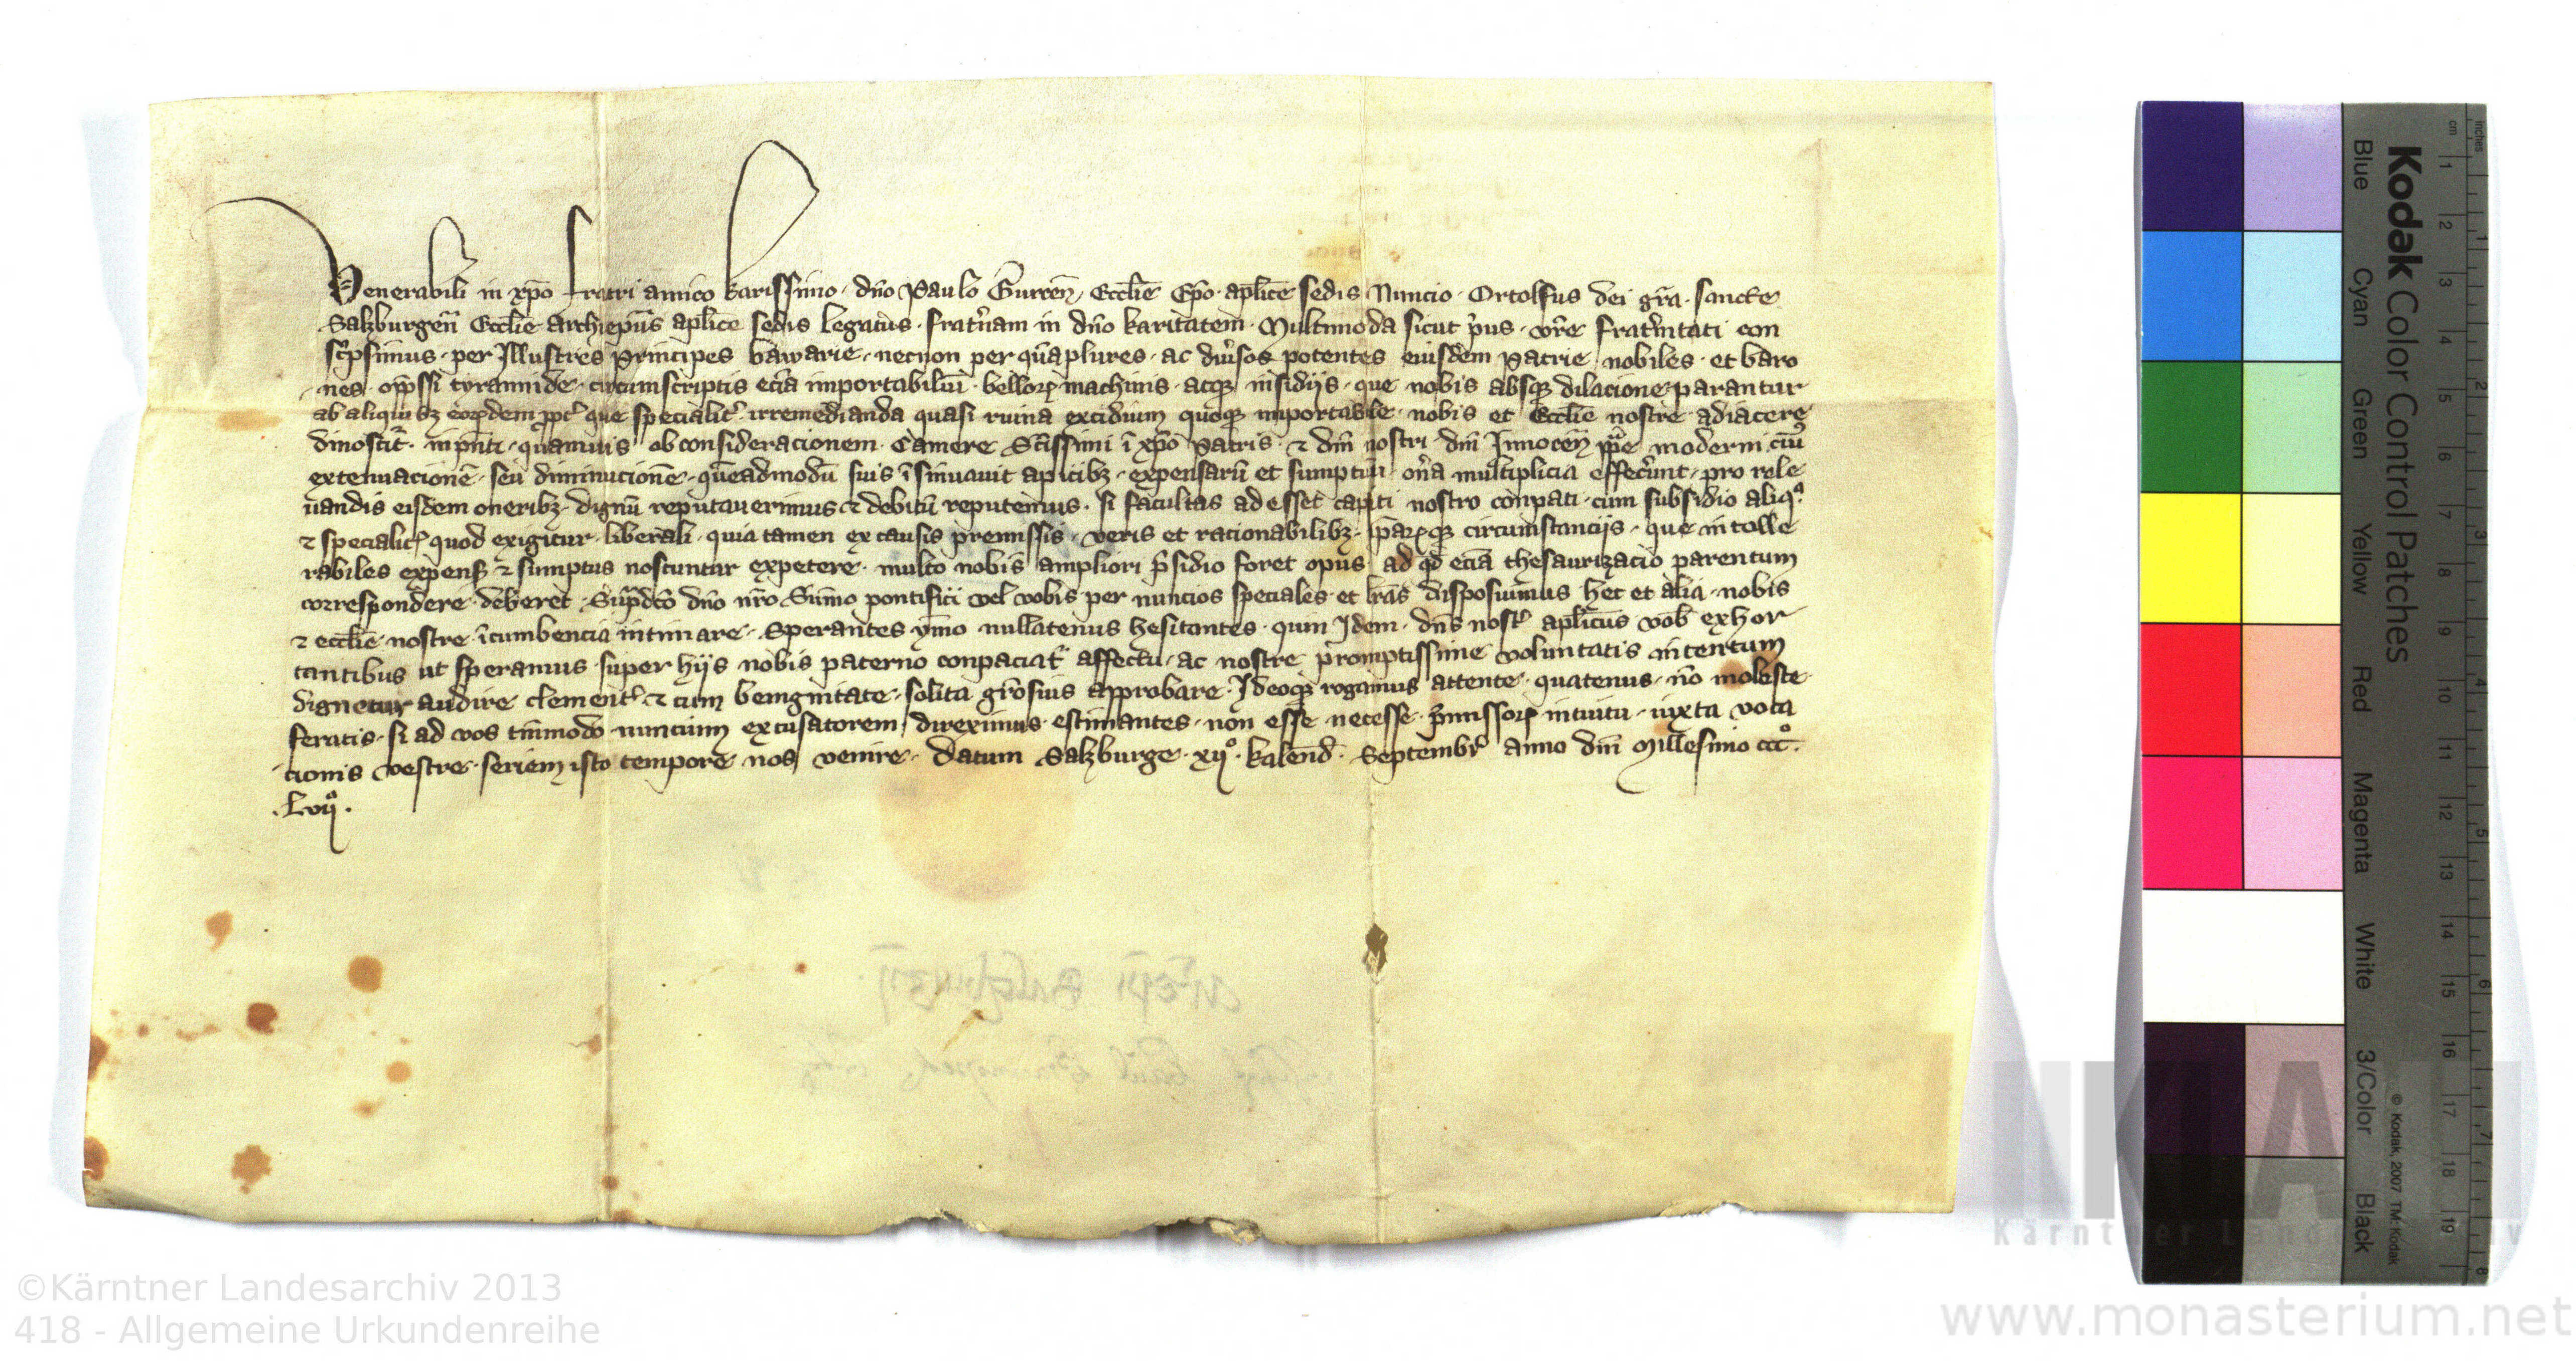 Venerabili in xp̄o fratri amico karissimo · dn̄o Paulo Gurcen̄ Eccl̄ie Ep̄o · apl̄ice sedis Nuncio · Ortolfus dei gr̄a · sancte
Salzburgen̄ Eccl̄ie archiep̄us apl̄ice sedis legatus · frat̄nam in dn̄o karitatem · Multimoda sicut p̄us · vr̄e frat̄nitati con
sc̄psimus · per Illustres Principes bawarie · necnon per qūaplures · ac diūsos potentes eiusdem patrie nobiles · et baro
nes · opp̄ssi tyrannide · circumscriptis ecīa importabiliū · belloꝝ machinis · atqꝫ insidijs · que nobis absqꝫ dilacione parantur
ab aliquibꝫ eoꝝdem que specialit̄ irremedianda quasi ruina excidium quoqꝫ importabile · nobis et Eccl̄ie nostre adiacere
dinoscit̄ · inpn̄ti · quamuis ob consideracionem · Camere Sc̄issimi ī xp̄o patris · ⁊ dn̄i nostri dn̄i Innocen̄ pp̄e moderni
extenuacionē · seu diminucionē · quēadmodū suis īsinuauit apicibꝫ · expensarū et sumptuū on̄a multiplicia effec̄unt · pro rele
uandis eisdem oneribꝫ · dignū reputauerimus ⁊ debitū reputemus · si facultas adesset capiti nostro conpati · cum subsidio aliqᵒ
⁊ specialit̄ quod exigitur · liberali · quia tamen ex causis premissis · veris et racionabilibꝫ · ip̄aꝝqꝫ circumstancijs · que intolle
rabiles expens̄ ⁊ sumptus noscuntur expetere · multo nobis ampliori p̄sidio foret opus · ad qd̄ eciā thesaurizacio parentum
correspondere deberet · Sup̄dc̄o dn̄o nr̄o Sum̄o pontifici vel vobis per nuncios speciales et lr̄as disposuimus hec et alia · nobis
⁊ eccl̄ie nostre īcumbencia intimare · Sperantes ym̄o nullatenus hesitantes · qum Idem · dn̄s nost̄ apl̄icus vob̄ exhor
tantibus ut speramus super hijs nobis paterno conpaciat̄ affectu · ac nostre promptissime voluntatis intentum
dignetur audire clement̄ ⁊ cum benignitate · solita gr̄osius approbare · Ideoqꝫ rogamus attente · quatenus · nō moleste
feratis · si ad vos tm̄modo nuncium excusatorem direximus · estimantes · non esse necesse · p̄missoꝝ intuitu · iuxta voca
cionis vestre · seriem isto tempore nos venire · Datum Salzburge · xijᵒ · kalend̄ · Septembr̄ anno dn̄i Millesimo cccᵒ ·
· Lvijᵒ ·
Kodak Color Control Patches
© Kodak, 2007 TM: Kodak
inches
cm
Blue
Cyan
Green
Yellow
Red
Magenta
White
3/Color
Black
1 2 3 4 5 6 7 8 9 10 11 12 13 14 15 16 17 18 19
1 2 3 4 5 6 7 8
©Kärntner Landesarchiv 2013
418 - Allgemeine Urkundenreihe
www.monasterium.net